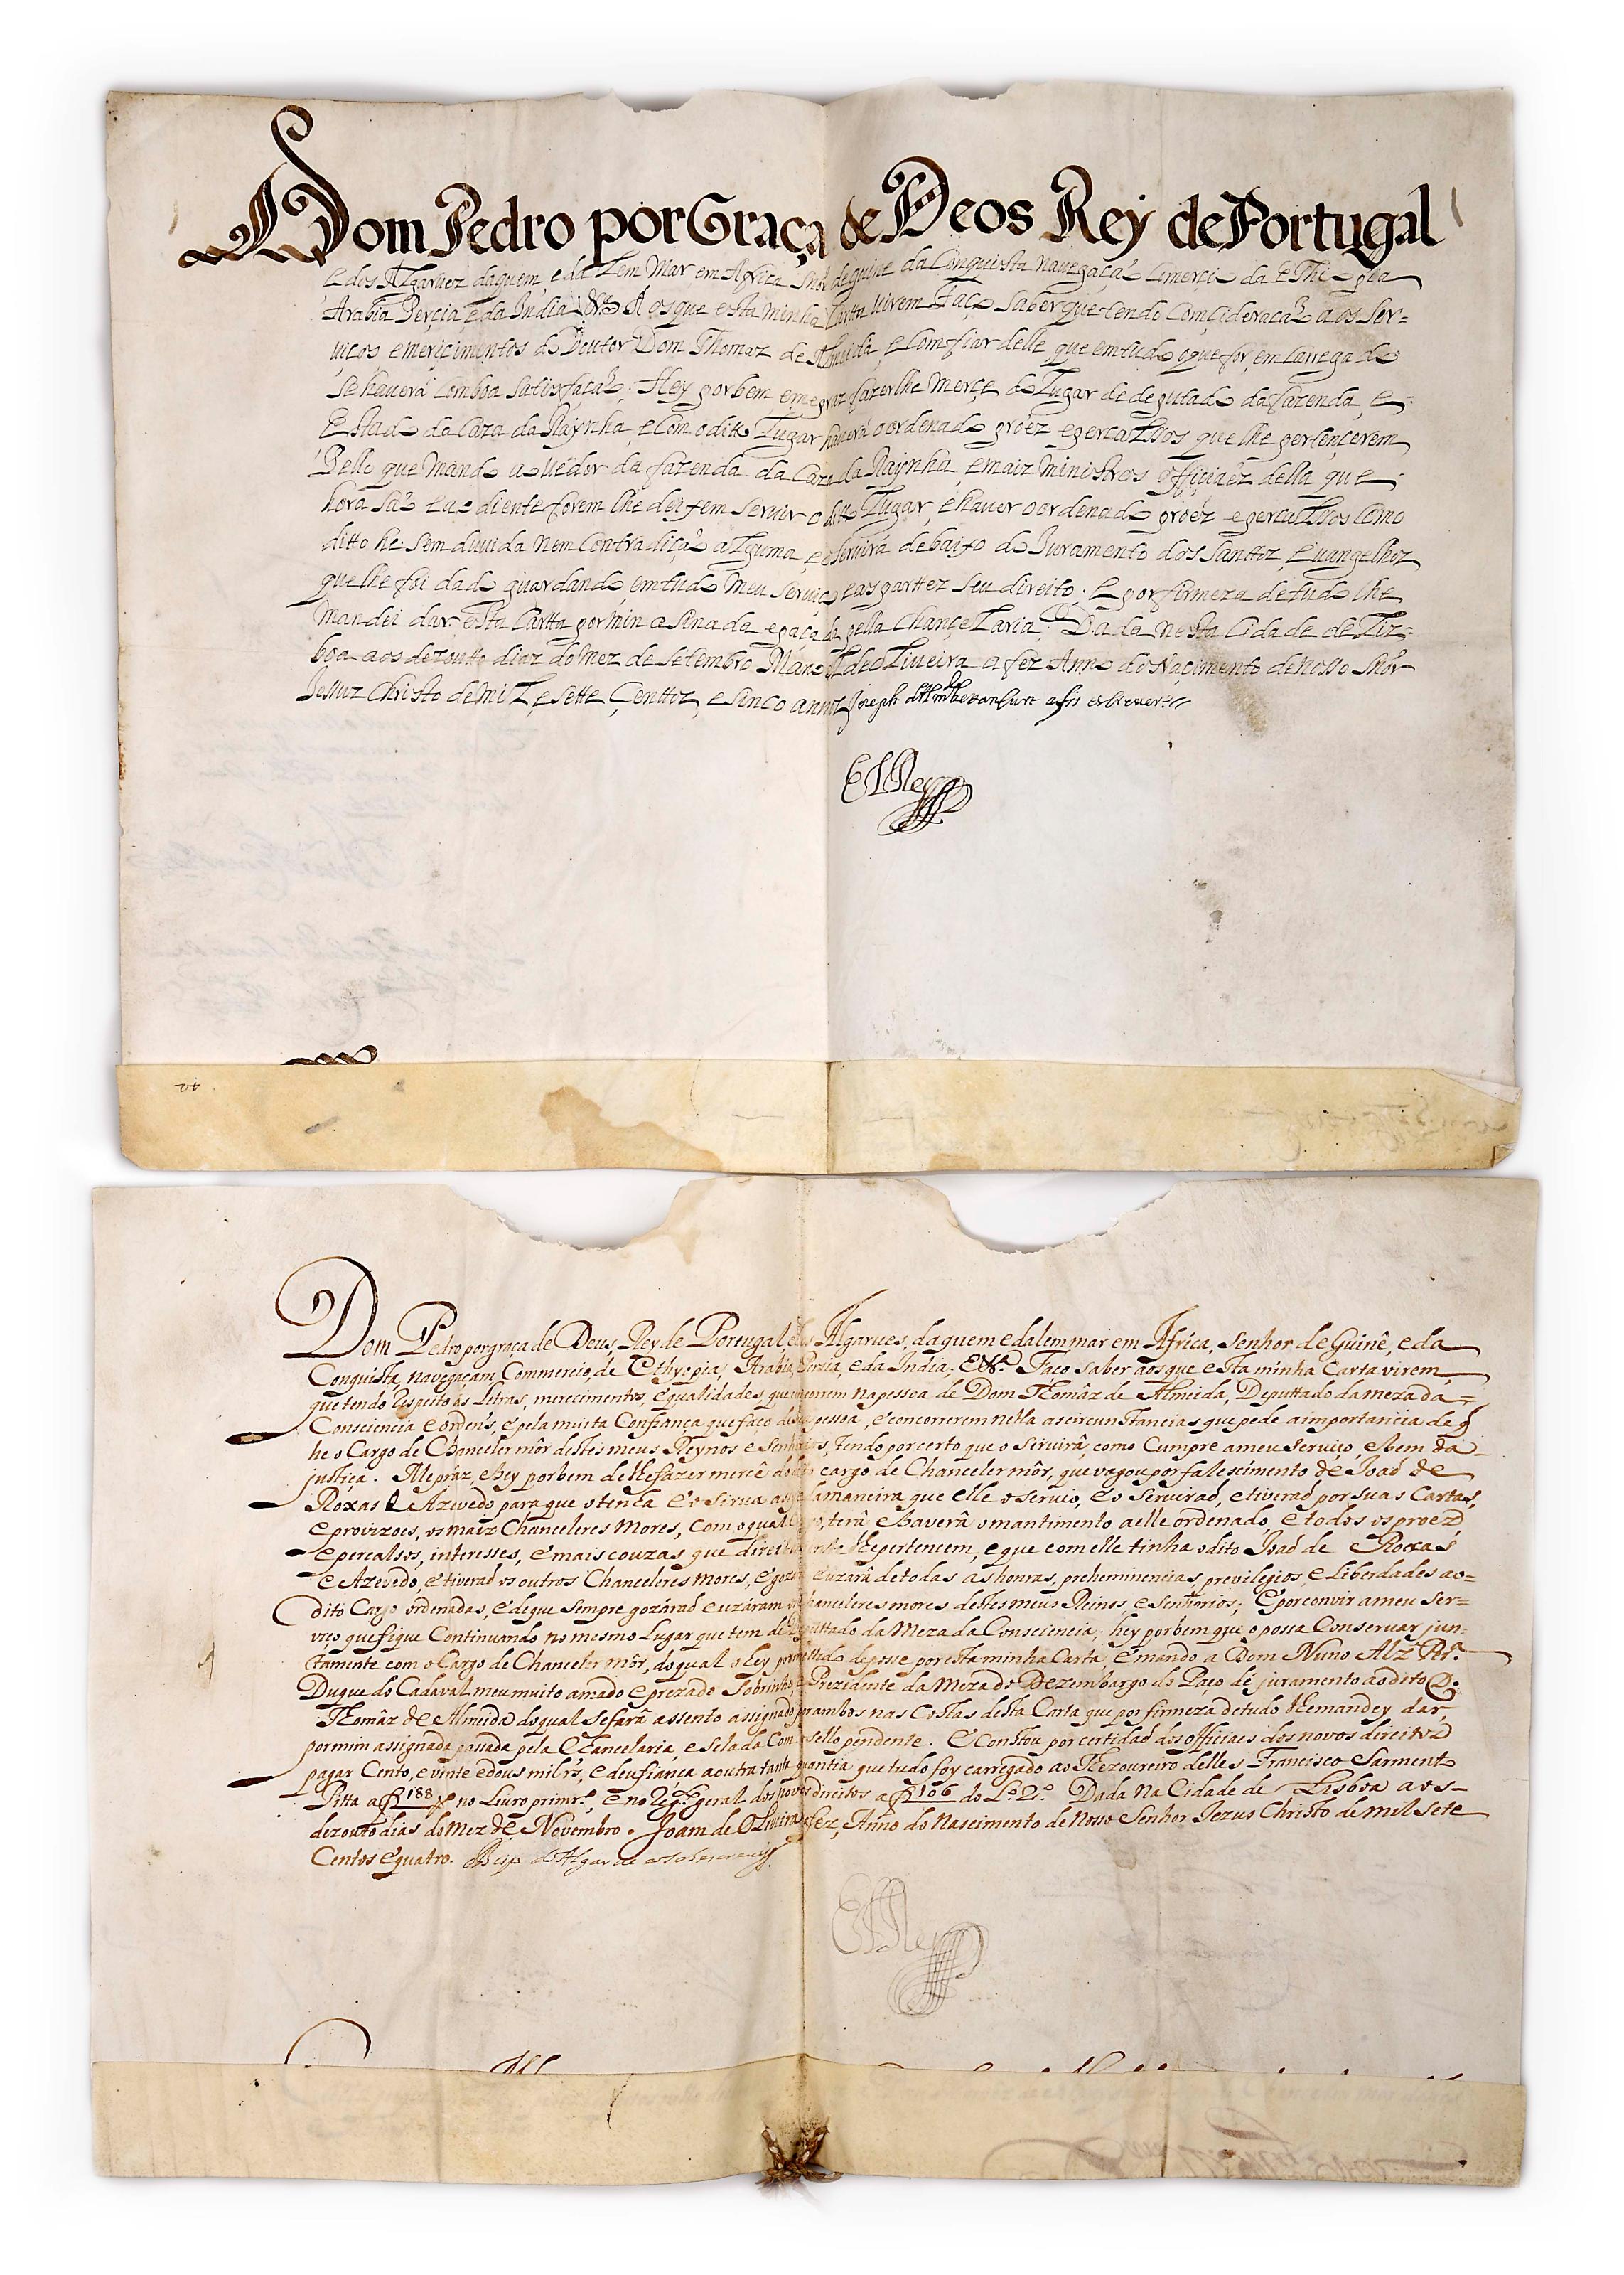 Dom Pedro por Graça de Deos Rey de Portugal
e dos Algarvez daquem, e da Lem Mar em Africa Snõr de guine da Conquista navegaçaõ Comerçio da EThiopia
Arabia Perçia e da India &ª Aos que esta minha Cartta virem Faço saber que tendo Comçideracaõ aos Ser=
uiços e mericimentos do Doutor Dom Thomaz de Almeida, e Comfiar delle que em tudo o que for em Carregado
Se hauerá Com boa Satisfaçaõ; Hey por bem e me praz fazerlhe Merçe do Lugar de deputado da fazenda, e
Estado da Caza da Raynha, e Com o ditto Lugar hauerá o ordenado proéz e percalssos que lhe pertençerem
Pello que Mando a Uédor da fazenda da Caza da Raynha, e maiz Ministros offiçiaéz della que
hora saõ e ao diente forem lhe deixem seruir o ditto Lugar, e hauer o ordenado proéz e percalssos Como
ditto he sem duuida nem Contradiçaõ alguma, e o seruirá debaixo do Juramento dos Santtoz Euangelhoz
que lhe foi dado guardando em tudo Meu seruiço e as parttez seu direito. E por firmeza de tudo lhe
Mandei dar esta Cartta por min asinada e paçada pella Chançelaria; Dada nesta Cidade de Liz=
boa aos dezoutto diaz do Mez de Setembro Manoel de oLiueira a fez Anno do Naçimento de Nosso Snór
Jesuz Christo de miL, e sette Çenttoz, e sinco annoz Joseph
El Rey
Dom Pedro por graça de Deus, Rey de Portugal, e dos Algarues, daquem e dalem mar em Africa, Senhor de Guinê, e da
Conquista, navegaçam, Commercio, de Ethyopia, Arabia, Persia, e da India, &ª. Faço saber aos que esta minha Carta virem,
que tendo respeito ás Letras, merecimentos, e qualidades, que concorrem na pessoa de Dom Thomâz de Almeida, Deputtado da meza da =
Consciencia e ordens, e pela muita Confiança que faço de sua pessoa, e concorrerem nella as circunstancias que pede a importancia de q
he o Cargo de Chanceler môr destes meus Reynos e Senhorios, tendo por certo que o servirâ, como Cumpre a meu serviço, e bem da
justiça. Me práz, e hey por bem de lhe fazer mercê do dito cargo de Chanceler môr, que vagou por falescimento de Joaõ de
Roxas e Azevedo para que o tenha e o sirva asy e da maneira que elle o servio, e o Serviraõ, e tiveraõ por suas Cartas,
e provizoes, os maiz Chanceleres Mores, com o qual terâ e haverâ o mantimento a elle ordenado, e todos os proez
e percalsos, interesses, e mais couzas que direitamente lhe pertencem, e que com elle tinha o dito Joaõ de Roxas
e Azevedo, e tiveraõ os outros Chanceleres mores, e gozarâ e uzarâ de todas as honras, preheminencias, previlegios, e Liberdades ao=
dito Cargo ordenadas, e de que sempre gozáraõ e uzáram os Chanceleres mores destes meus Reinos, e senhorios; E por convir a meu ser=
viço que fique Continuando no mesmo Lugar que tem de Deputtado da Meza da Consciencia, hey por bem que o possa Conservar jun=
tamente com o Cargo de Chanceler môr, do qual o hey por mettido de posse por esta minha Carta, e mando a Dom Nuno Alz Prª.
Duque do Cadaval meu muito amado e prezado Sobrinho, e Prezidente da Meza do Dezembargo do Paço dê juramento ao dito D.
Thomâz de Almeida do qual se farâ assento assignado por ambos nas Costas desta Carta que por firmeza de tudo lhe mandey dar,
por mim assignada, passada pela Chancelaria, e selada Com o sello pendente. E Constou por certidaõ dos officiaes dos novos direitoz
pagar Cento, e vinte e dous mil rs, e deu fiança a outra tanta quantia que tudo foy carregado ao Thezoureiro delles Francisco Sarmento
Pitta a f 188 no Livro primrº., e no Regº. geral dos novos direitos a f 106 do Lº. 2º. Dada na Cidade de Lisboa aos =
dezouto dias do Mez de Novembro. Joam de Oliveira a fez, Anno do nascimento de Nosso Senhor Jezus Christo de mil sete
Centos e quatro.
El Rey